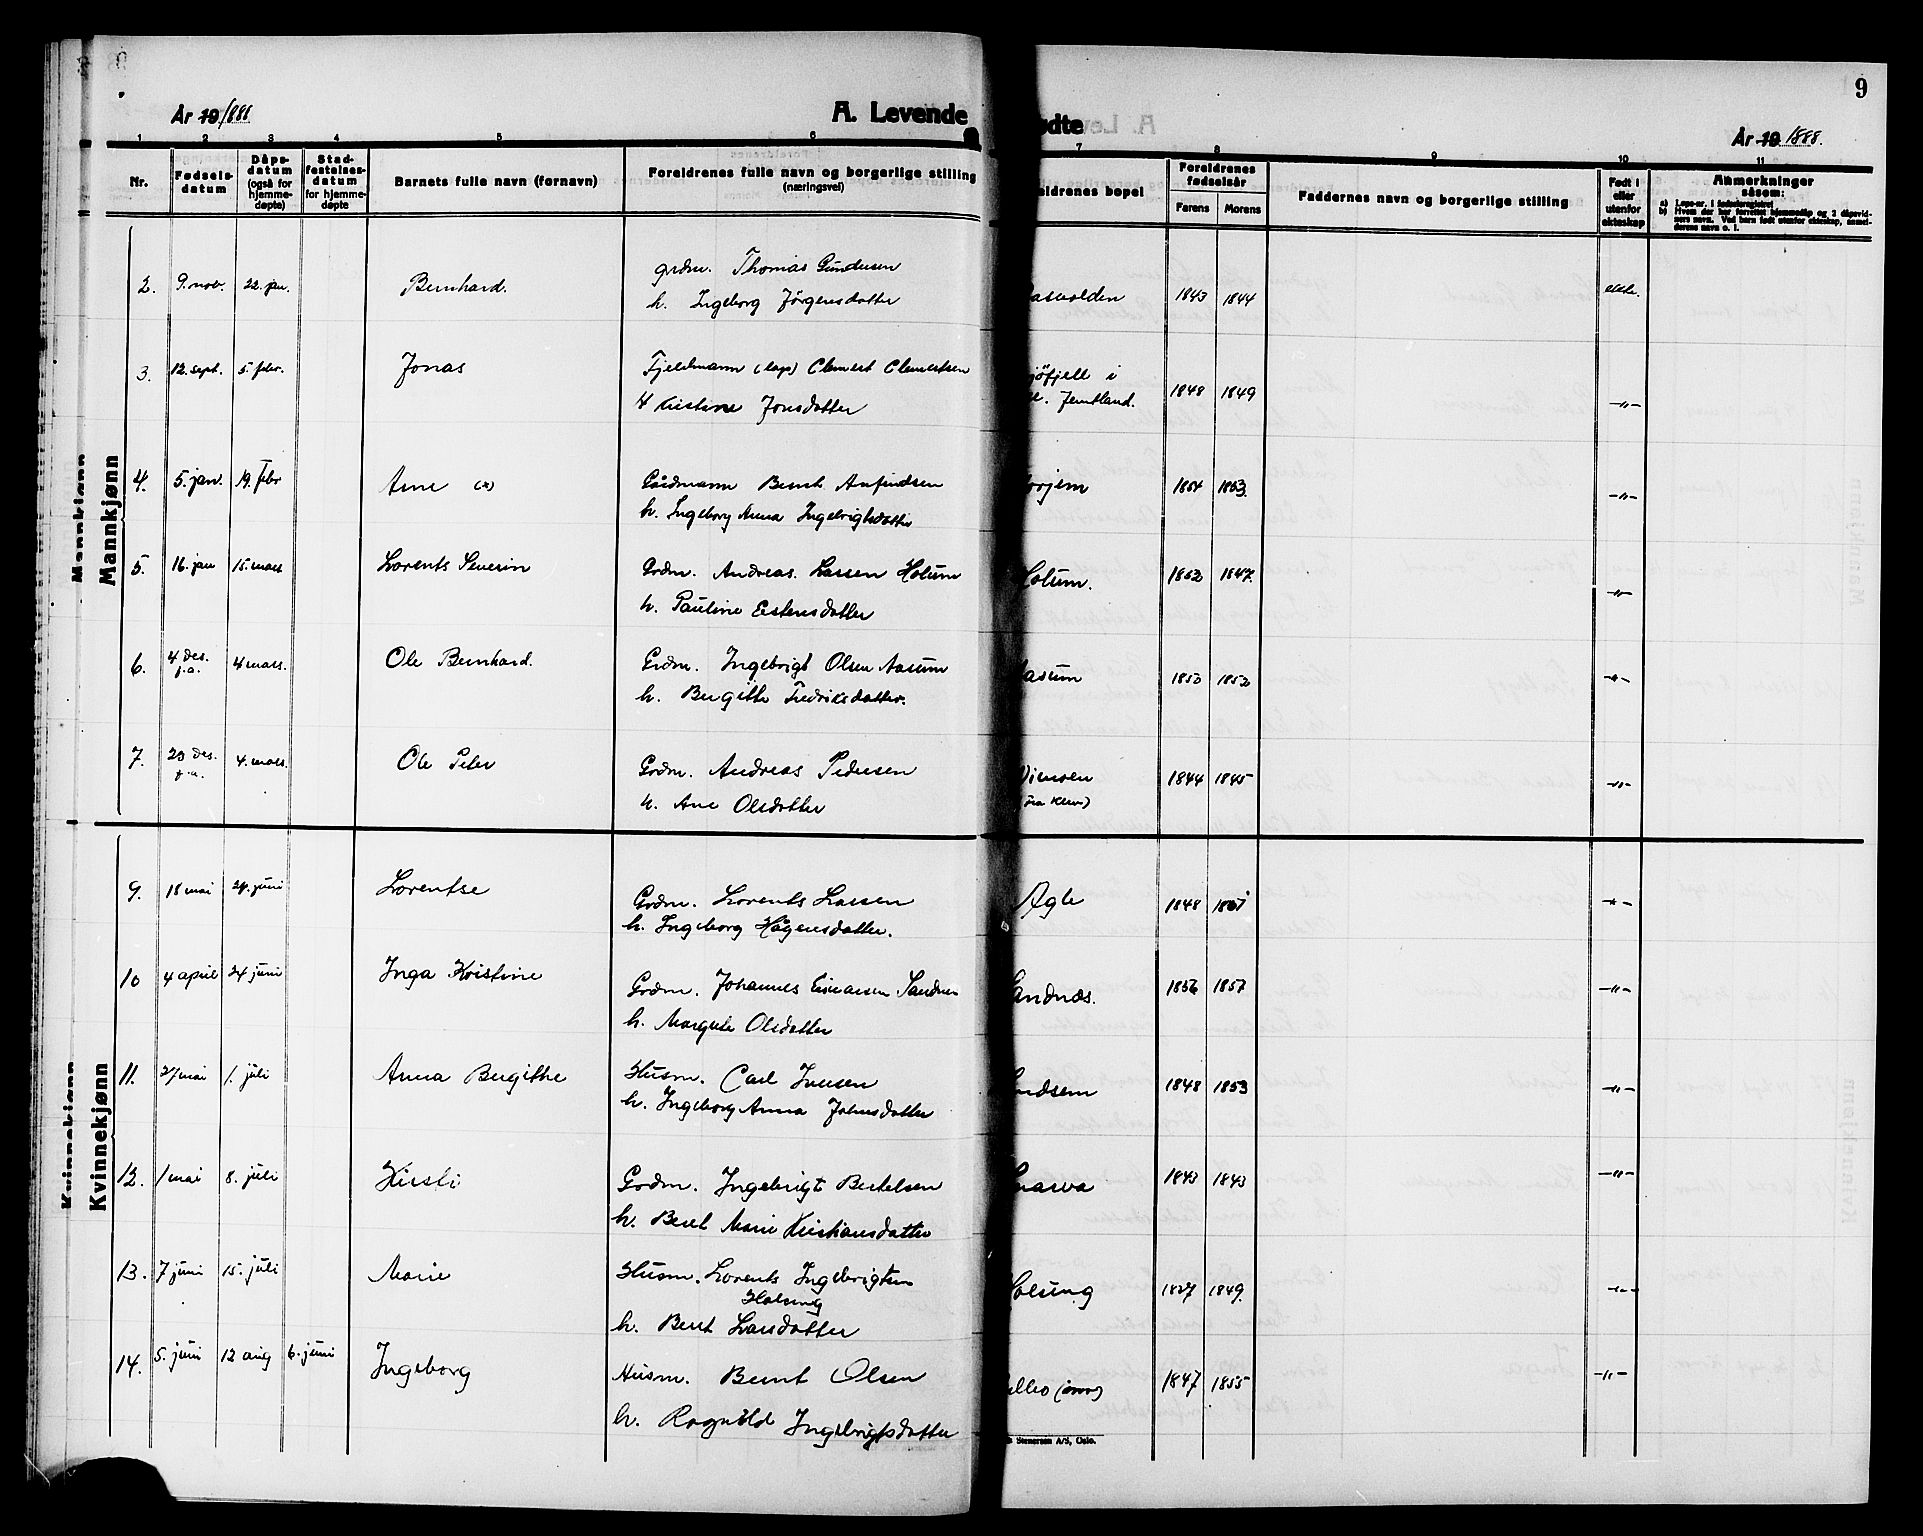 9
År 19 1888
A. Levende
ødte
År 19 1888.
1 2 3 4 5 6 7 8 9 10 11
Nr.
Fødsels-
datum
Dåps-
datum
(også for
hjemme-
døpte)
Stad-
festelses-
datum
for hjemme-
døpte
Barnets fulle navn (fornavn)
Foreldrenes fulle navn og borgerlige stilling
(næringsvei)
eldrenes bopel
Foreldrenes
fødselsår
Farens Morens
Faddernes navn og borgerlige stilling
Født i
eller
utenfor
ekteskap
Anmerkninger
såsom:
a) Løpe-nr. i fødselsregistret
b) Hvem der har forrettet hjemmedåp og 2 dåpsvid-
ners navn. Ved barn født utenfor ekteskap, anmel-
derens navn o. l.
Mannkjønn
2. 9. nov. 22. jan. Bernhard. grdm. Thomas Gundersen
h. Ingeborg Jörgensdatter
aasvolden 1843 1844 ekte.
3. 12. sept. 5. febr. Jonas Fjeldmann (lap) Clemet Clemetsen
H Kristine Jonsdatter
jöfjell i
Jemtland. 1848 1849 -"-
4. 5. jan. 19. febr Arne (x) Gårdmann Bernt Anfindsen
h. Ingeborg Anna Ingebrigtsdatter
orjem 1854 1853. -"-
5. 16. jan 15. mars Lorents Severin Grdm. Andreas Lassen Holum
h. Pauline Estensdatter
Holum. 1852 1847. -"-
6. 4 des.
f.a. 4 mars. Ole Bernhard. Grdm. Ingebrigt Olsen Aasum
h. Bergitte Fredriksdatter.
Aasum 1852 1852 -"-
7. 29 des.
f.a. 4. mars. Ole Peter Grdm. Andreas Pedersen
h. Ane Olsdatter
Vimoen 1844 1845 -"-
Kvinnekjønn
9. 18 mai 24. juni Lorentse Grdm. Lorents Lassen
h. Ingeborg Hågensdatter.
Agle 1848 -"-
10 4 april 24 juni Inga Kristine Grdm. Johannes Einarsen Sandnes
h. Margrete Olsdatter
Sandnæs. 1856 1857 -"-
11. 27 mai 1. juli Anna Bergithe Husm. Carl Iversen
h. Ingeborg Anna Johnsdatter
ndsem 1848 1853 -"-
12. 1 mai 8. juli Kirsti Grdm. Ingebrigt Bertelsen
h. Beret Marie Kristiansdatter
naava 1843 1843 -"-
13. 7 juni 15. juli Marie Husm. Lorents Ingebrigtsen
Holsing
h. Beret Larsdatter
olsing 1827 1849. -"-
14. 5. juni 12 aug 6. juni Ingeborg Husm. Bernt Olsen
h. Ragnild Ingebrigtsdatter
1847 1855 -"-
Stenersen A/S, Oslo.